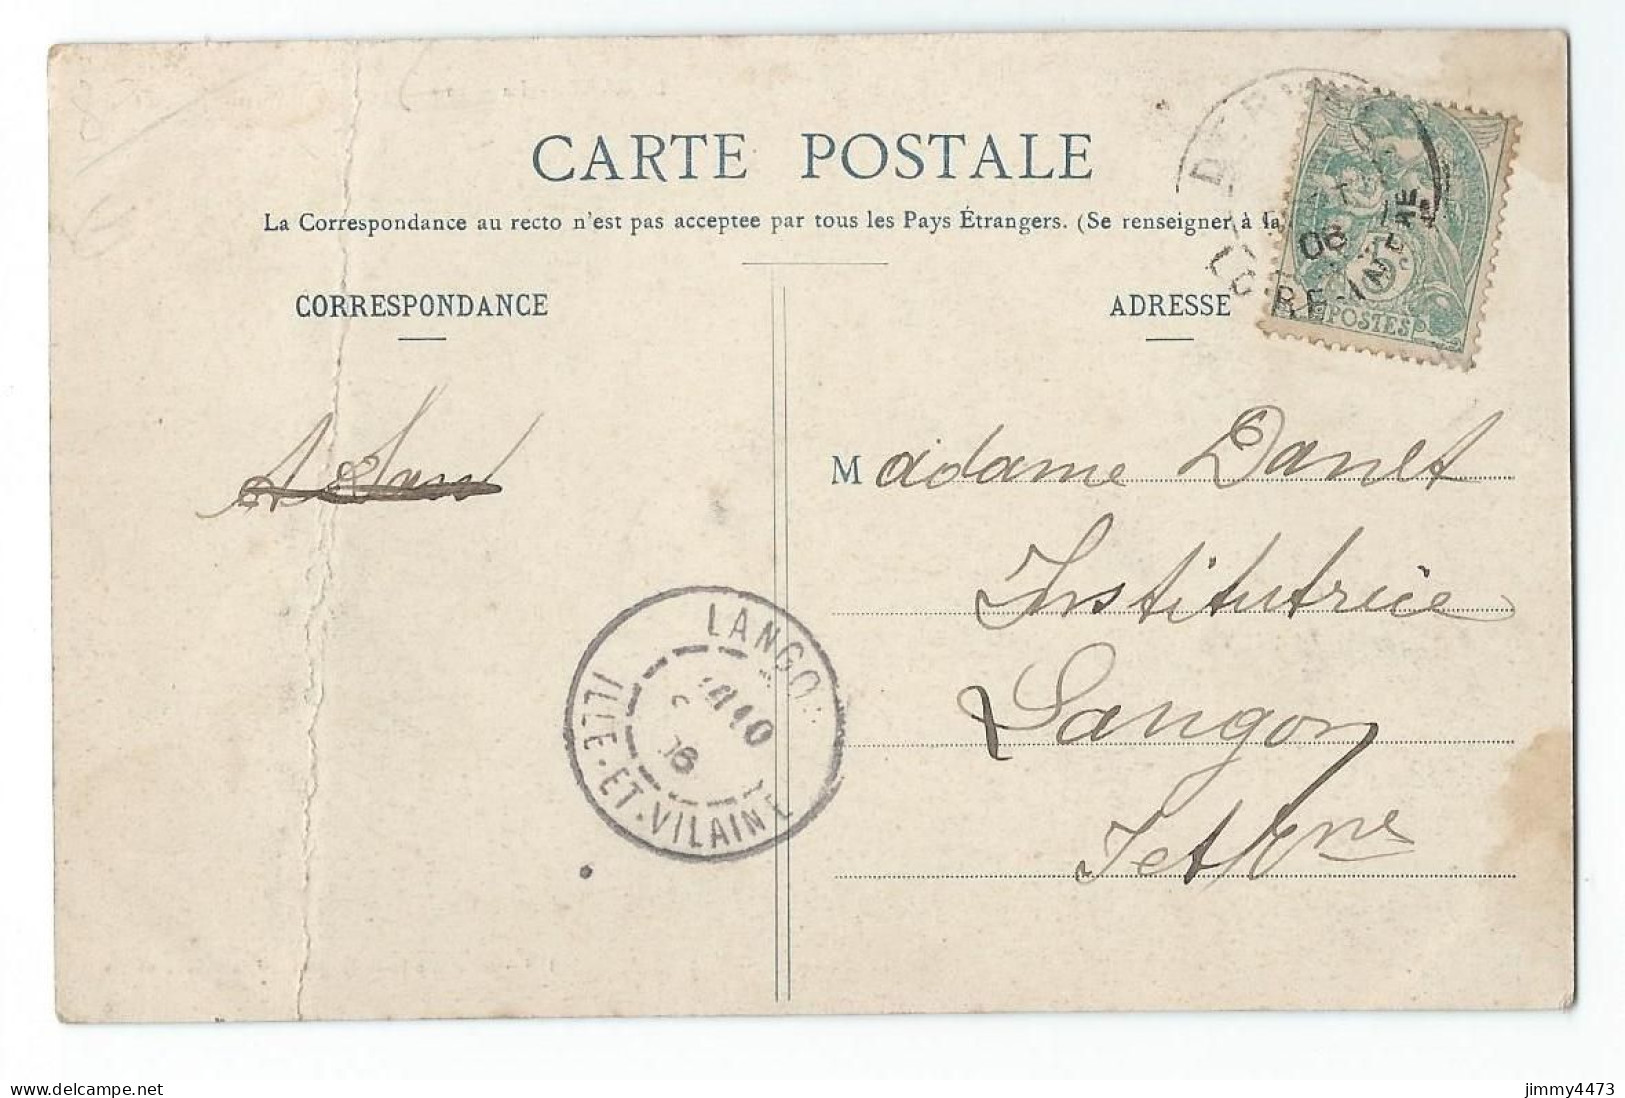 CARTE POSTALE
La Correspondance au recto n'est pas acceptee par tous les Pays Étrangers. (Se renseigner à la
CORRESPONDANCE
ADRESSE
POSTES
06
LOIRE-INFRE
Madame Danet
Institutrice
Langon
Iet Vne
LANGON
ILLE.ET.VILAINE
delcampe.net
jimmy4473